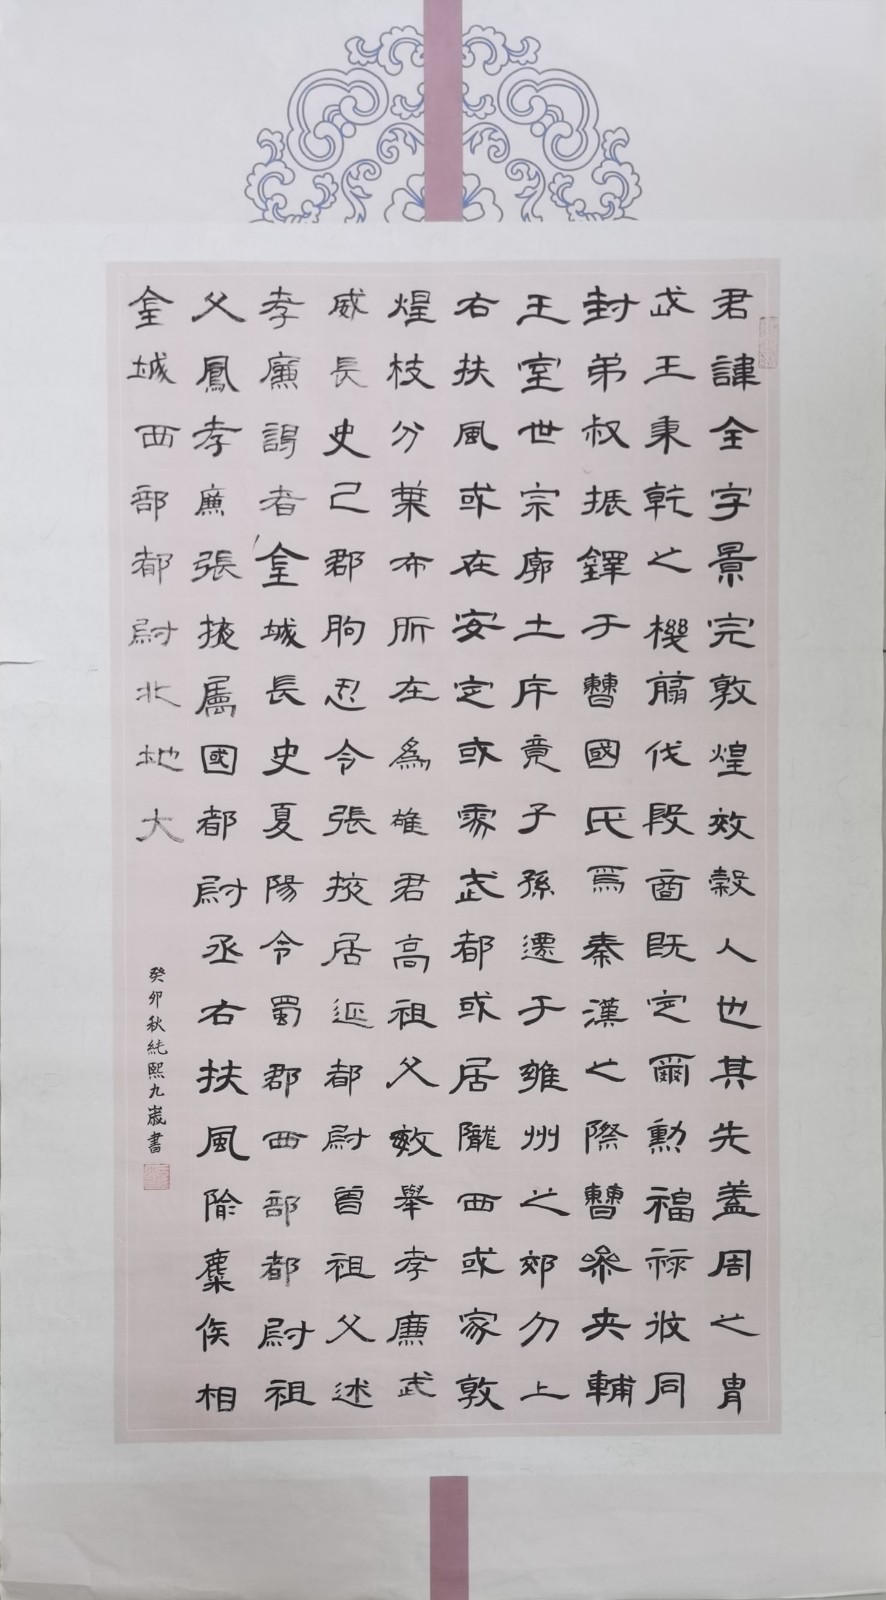 君諱全字景完敦煌效穀人也其先蓋周之胄
武王秉乾之機翦伐殷商既定爾勳福祿攸同
封弟叔振鐸于曹國氏焉秦漢之際曹參夾輔
王室世宗廓土斥竟子孫遷于雍州之郊分止
右扶風或在安定或處武都或居隴西或家敦
煌枝分葉布所在為雄君高祖父敏舉孝廉武
威長史巴郡朐忍令張掖居延都尉曾祖父述
孝廉謁者金城長史夏陽令蜀郡西部都尉祖
父鳳孝廉張掖屬國都尉丞右扶風隃麋侯相
金城西部都尉北地大
癸卯秋純熙九歲書